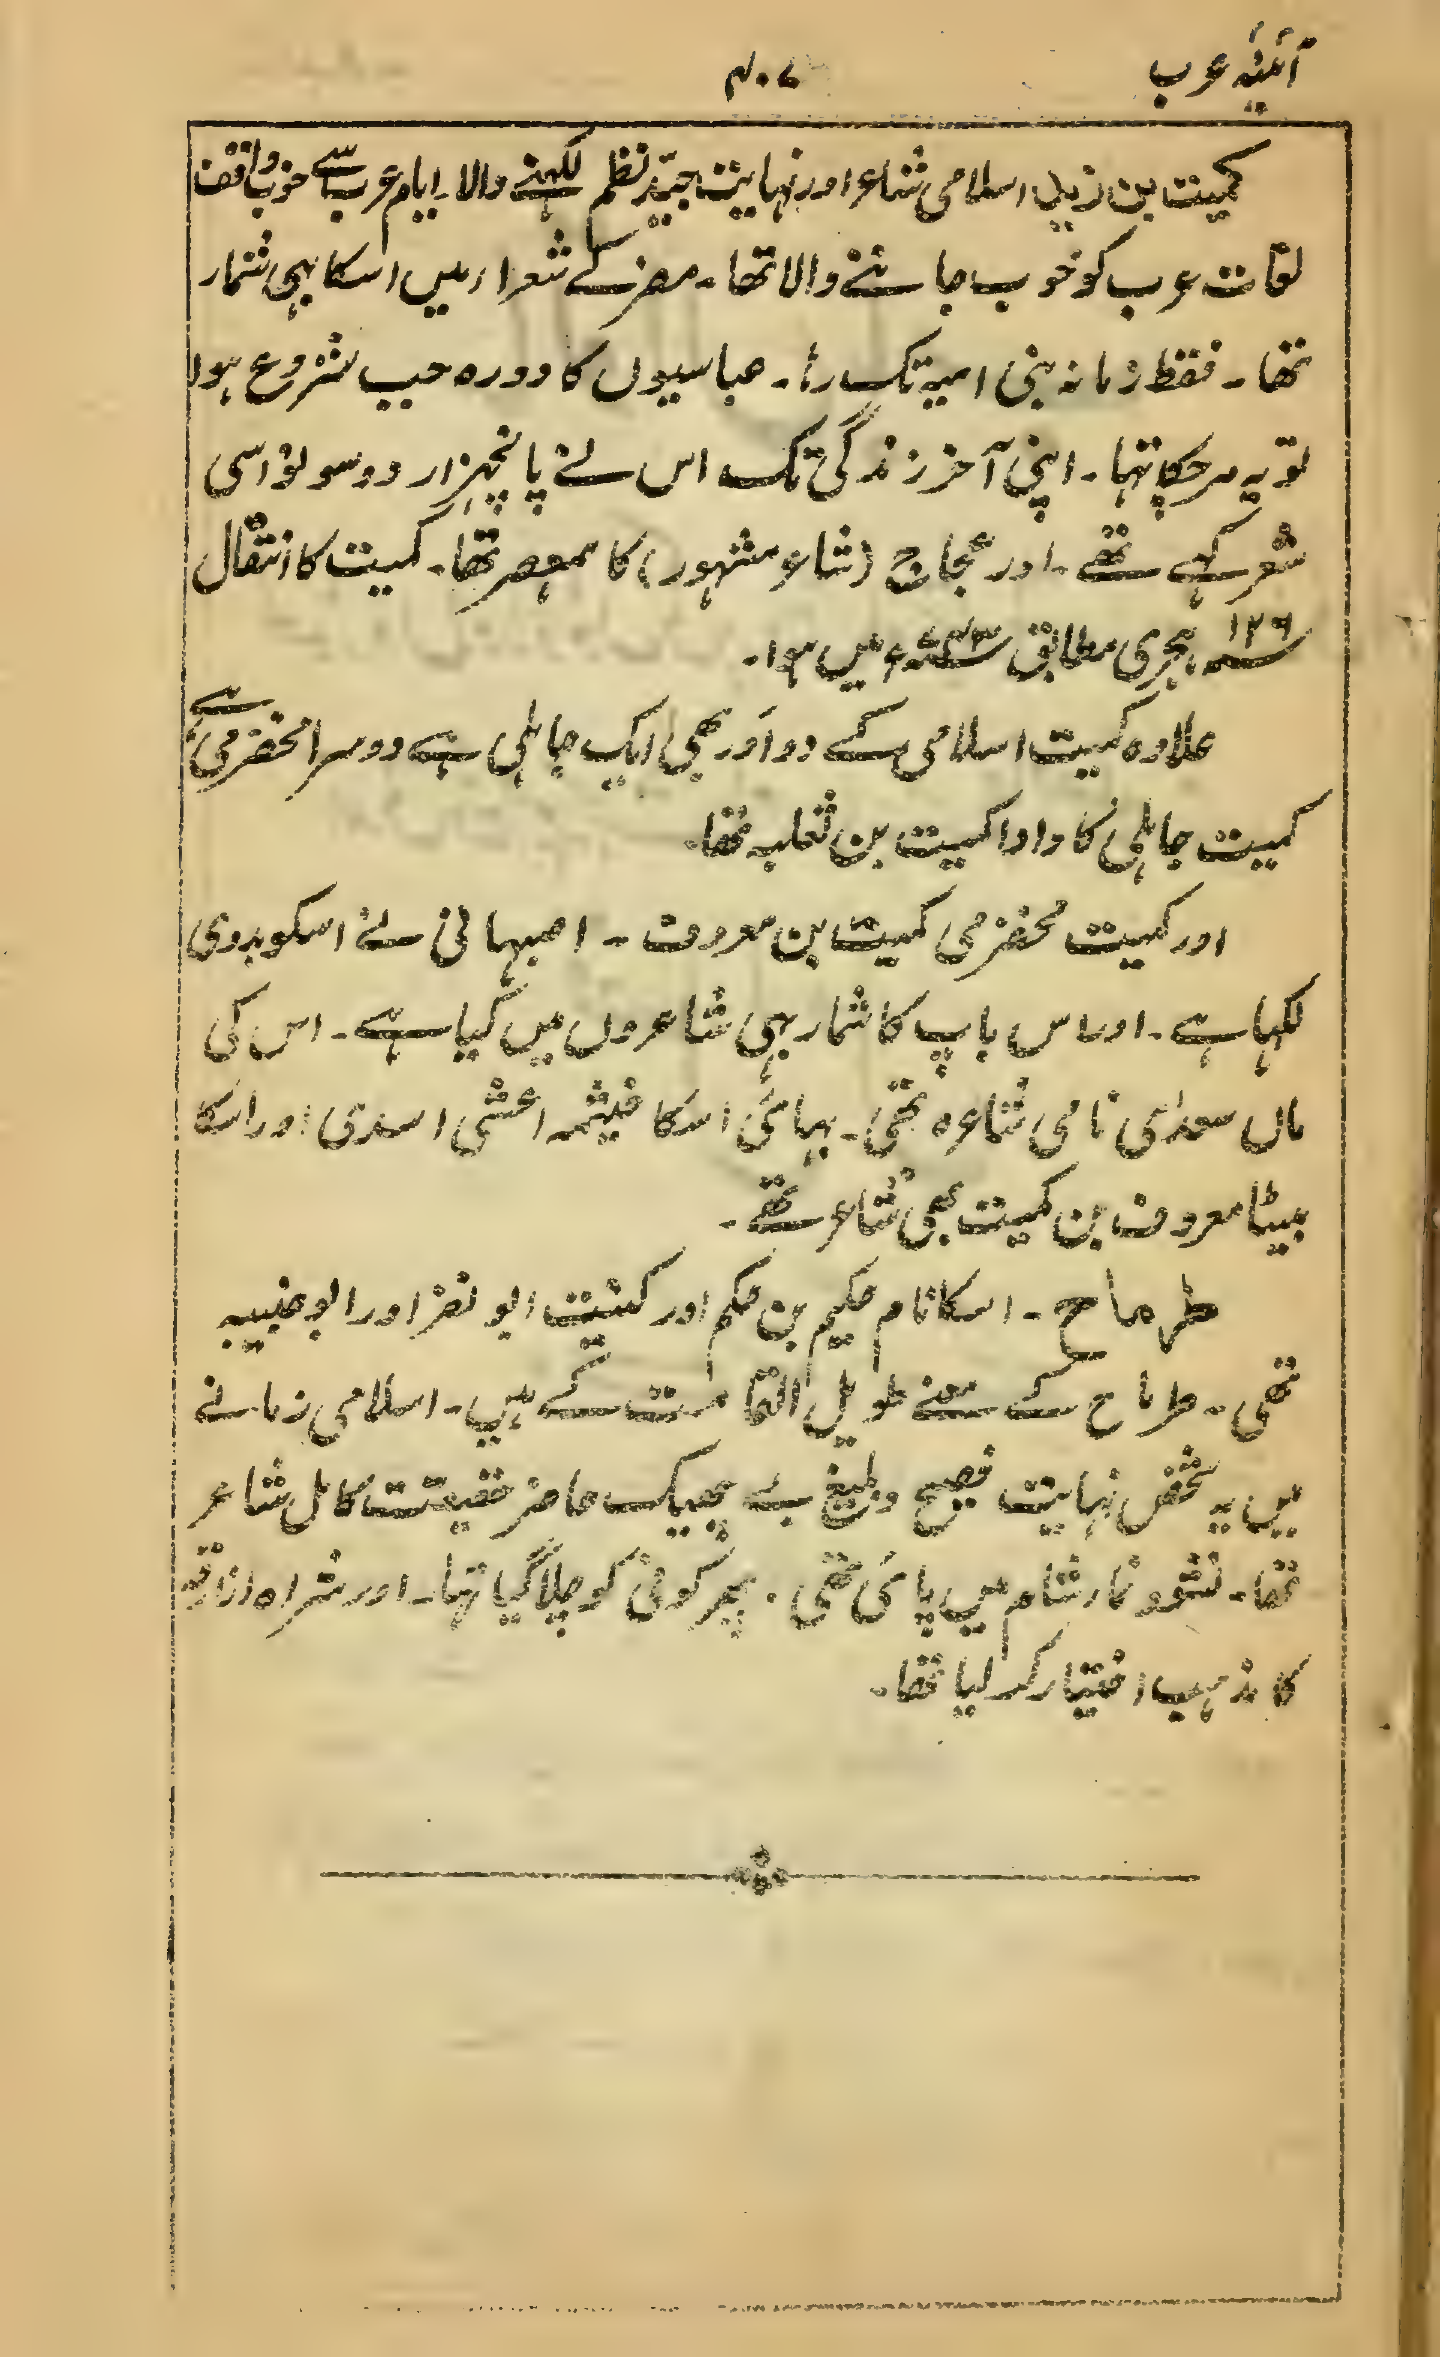 آئینہ عرب
۴۰۷
کمیت بن زید اسلامی شاعر اور نہایت جیّد نظم لکہنے والا۔ ایام عرب سے خوب واقف
لغات عرب کو خوب جاننے والا تھا۔ مضر کے شعراء میں اسکا بہی شمار
تھا۔ فقط زمانہ بنی امیہ تک رہا۔ عباسیوں کا دورہ جب شروع ہوا
تو یہ مرچکا تہا۔ اپنی آخر زندگی تک اس نے پانچہزار دوسو نواسی
شعر کہے تھے۔ اور عجاج (شاعر مشہور) کا ہمعصر تھا۔ کمیت کا انتقال
۱۲۶ ہجری مطابق ۷۴۳ء میں ہوا۔
علاوہ کمیت اسلامی کے دو اَور بھی ایک جاہلی ہے دوسرا مخضرمی ہے
کمیت جاہلی کا دادا کمیت بن ثعلبہ تھا۔
اور کمیت مخضرمی کمیت بن معروف۔ اصبہانی نے اسکو بدوی
لکہا ہے۔ اور اس باپ کا شمار بہی شاعروں میں کیا ہے۔ اس کی
ماں سعدٰی نامی شاعرہ تھی۔ بہائی اسکا خیثمہ اعشی اسدی اور اسکا
بیٹا معروف بن کمیت بھی شاعر تھے۔
طرماح۔ اسکا نام حکیم بن حکم اور کنیت ابو نضر اور ابو ضبیبہ
تھی۔ طرماح کے معنے طویل القامت کے ہیں۔ اسلامی زمانے
میں یہ شخص نہایت فصیح و بلیغ بے جھیک حاضر طبیعت کامل شاعر
تھا۔ نشوونما شام میں پائی تھی۔ پھر کوفی کو چلا گیا تہا۔ اور شراہ ازارقہ
کا مذہب اختیار کر لیا تھا۔